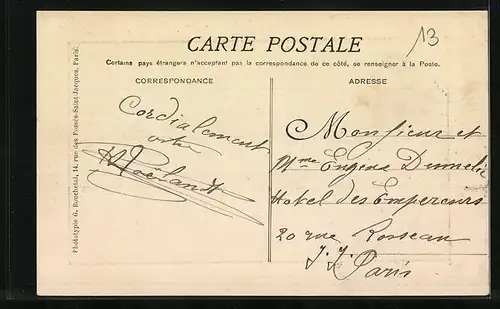 13
CARTE POSTALE
Certains pays étrangers n'acceptant pas la correspondance de ce côté, se renseigner à la Poste.
CORRESPONDANCE
ADRESSE
Phototypie G. Bouchetal, 14, rue des Fossés-Saint-Jacques, Paris.
Cordialement
votre
Monsieur et
Mme Eugène
Hotel des Empereurs
20 rue Rosseau
J. J.
Paris